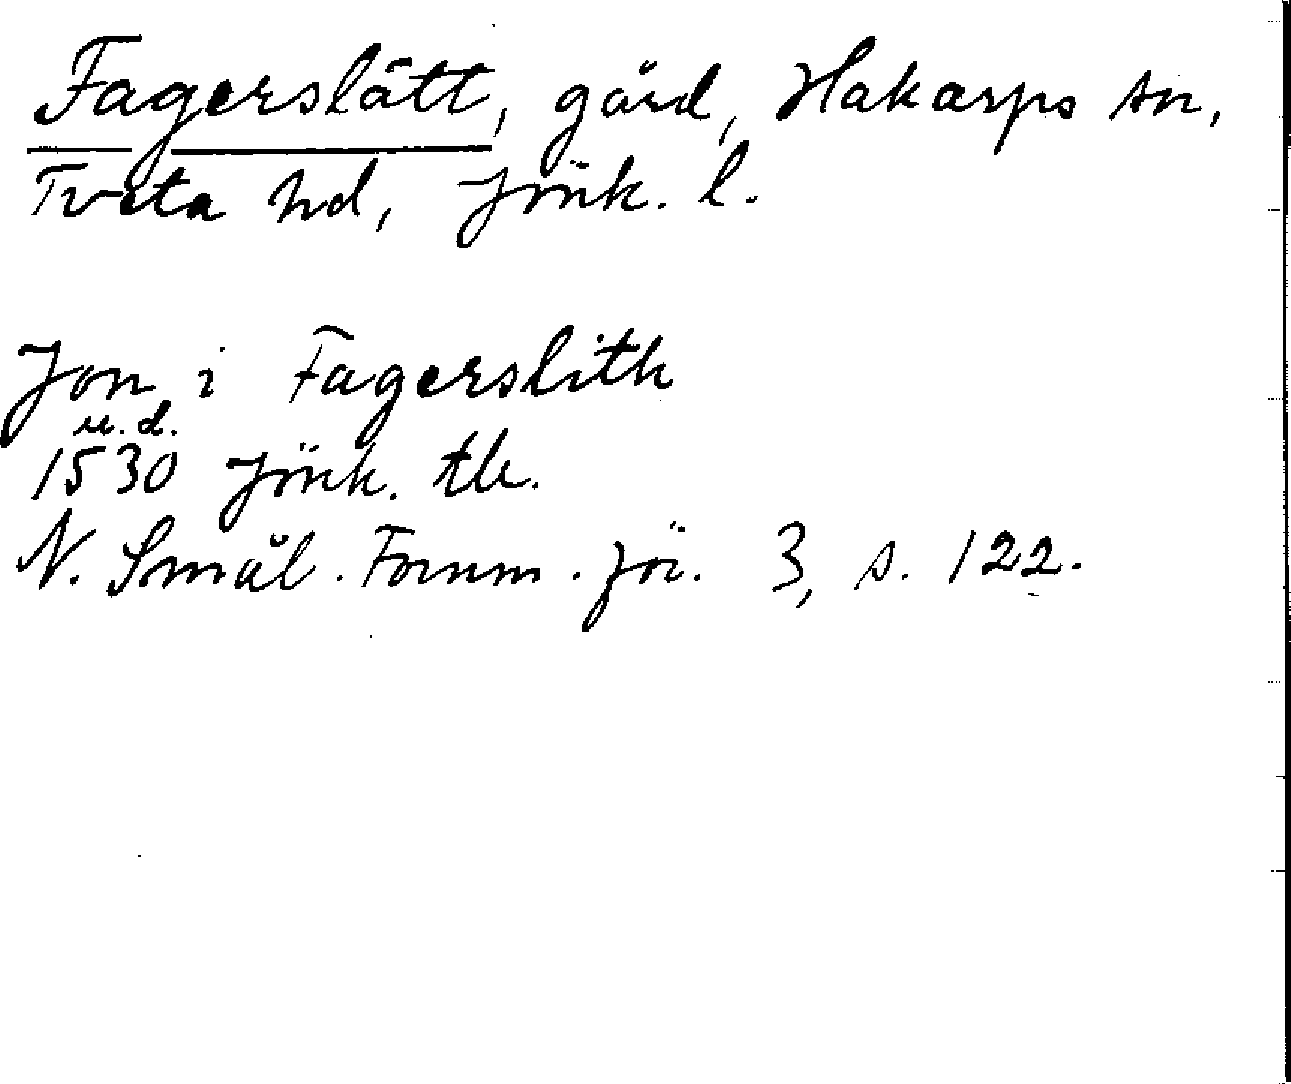 Fagerslätt, gård, Hakarps sn,
Tveta hd, Jönk. l.
Jon i Fagerslith
u.d.
1530 Jönk. tb.
N. Smål. Fornm. för. 3, s. 122.